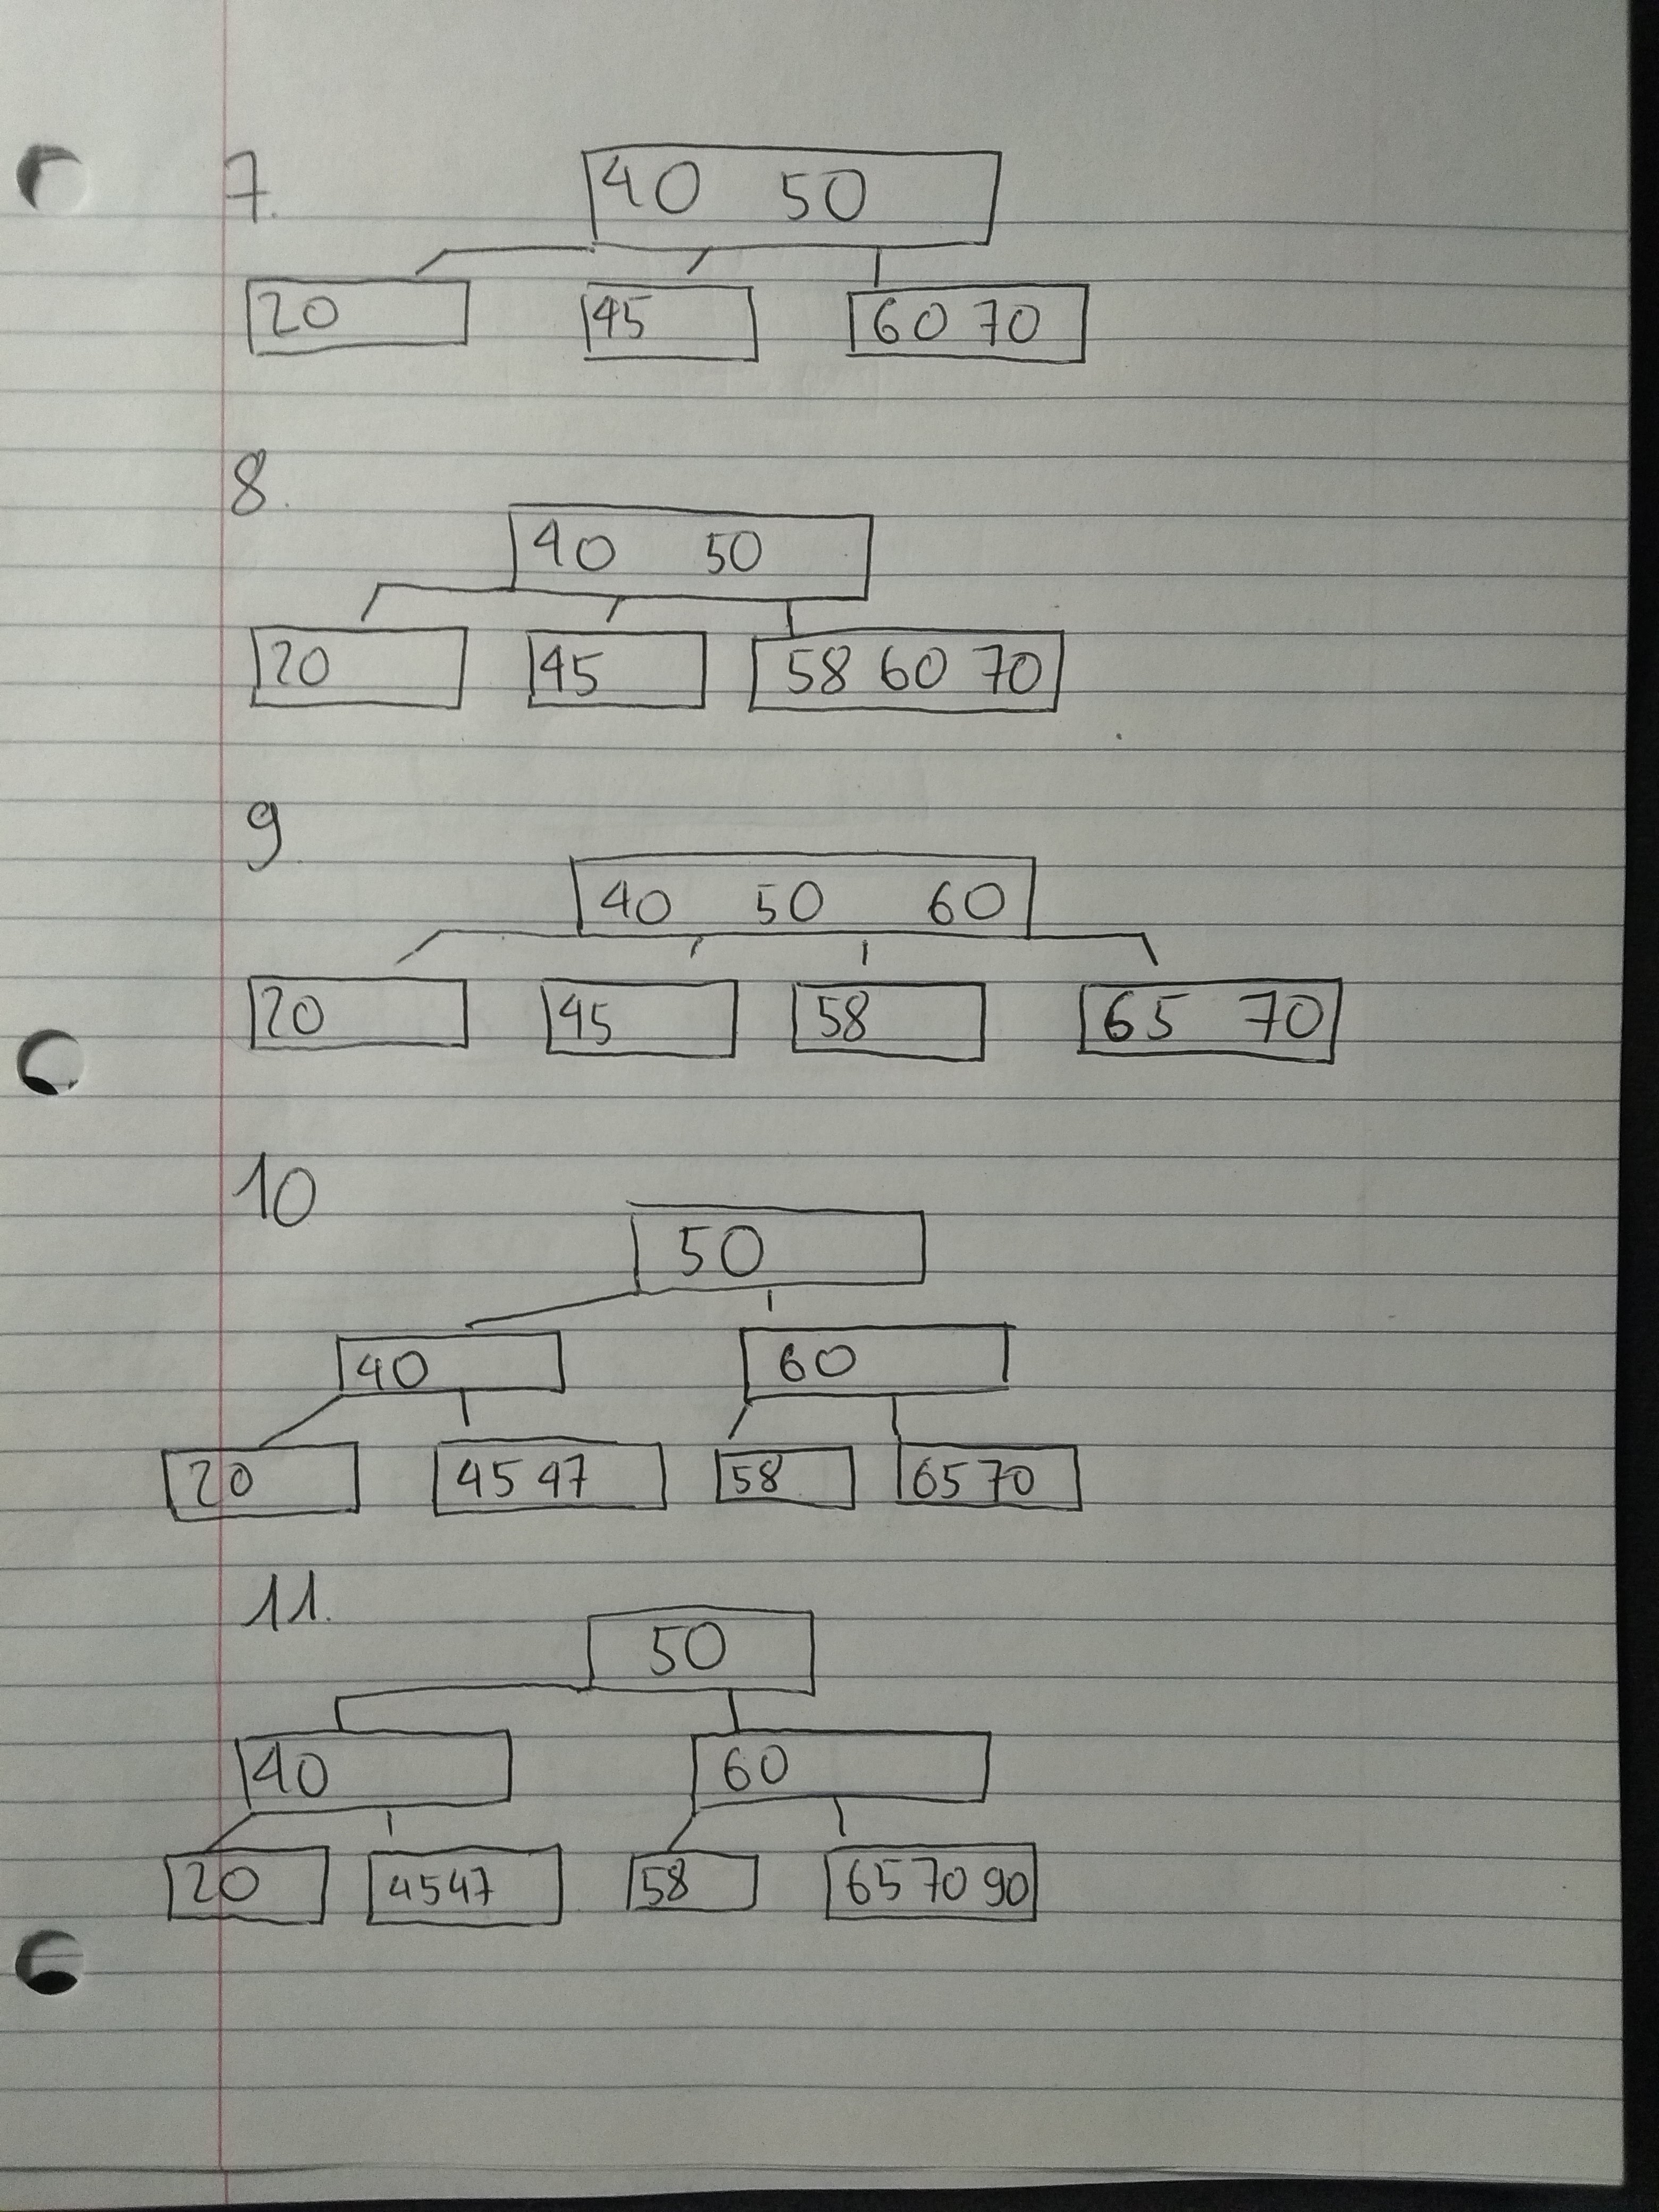 7. 40 50
20 45 60 70
8.
40 50
20 45 58 60 70
9
40 50 60
20 45 58 65 70
10
50
40 60
20 45 47 58 65 70
11.
50
40 60
20 45 47 58 65 70 90